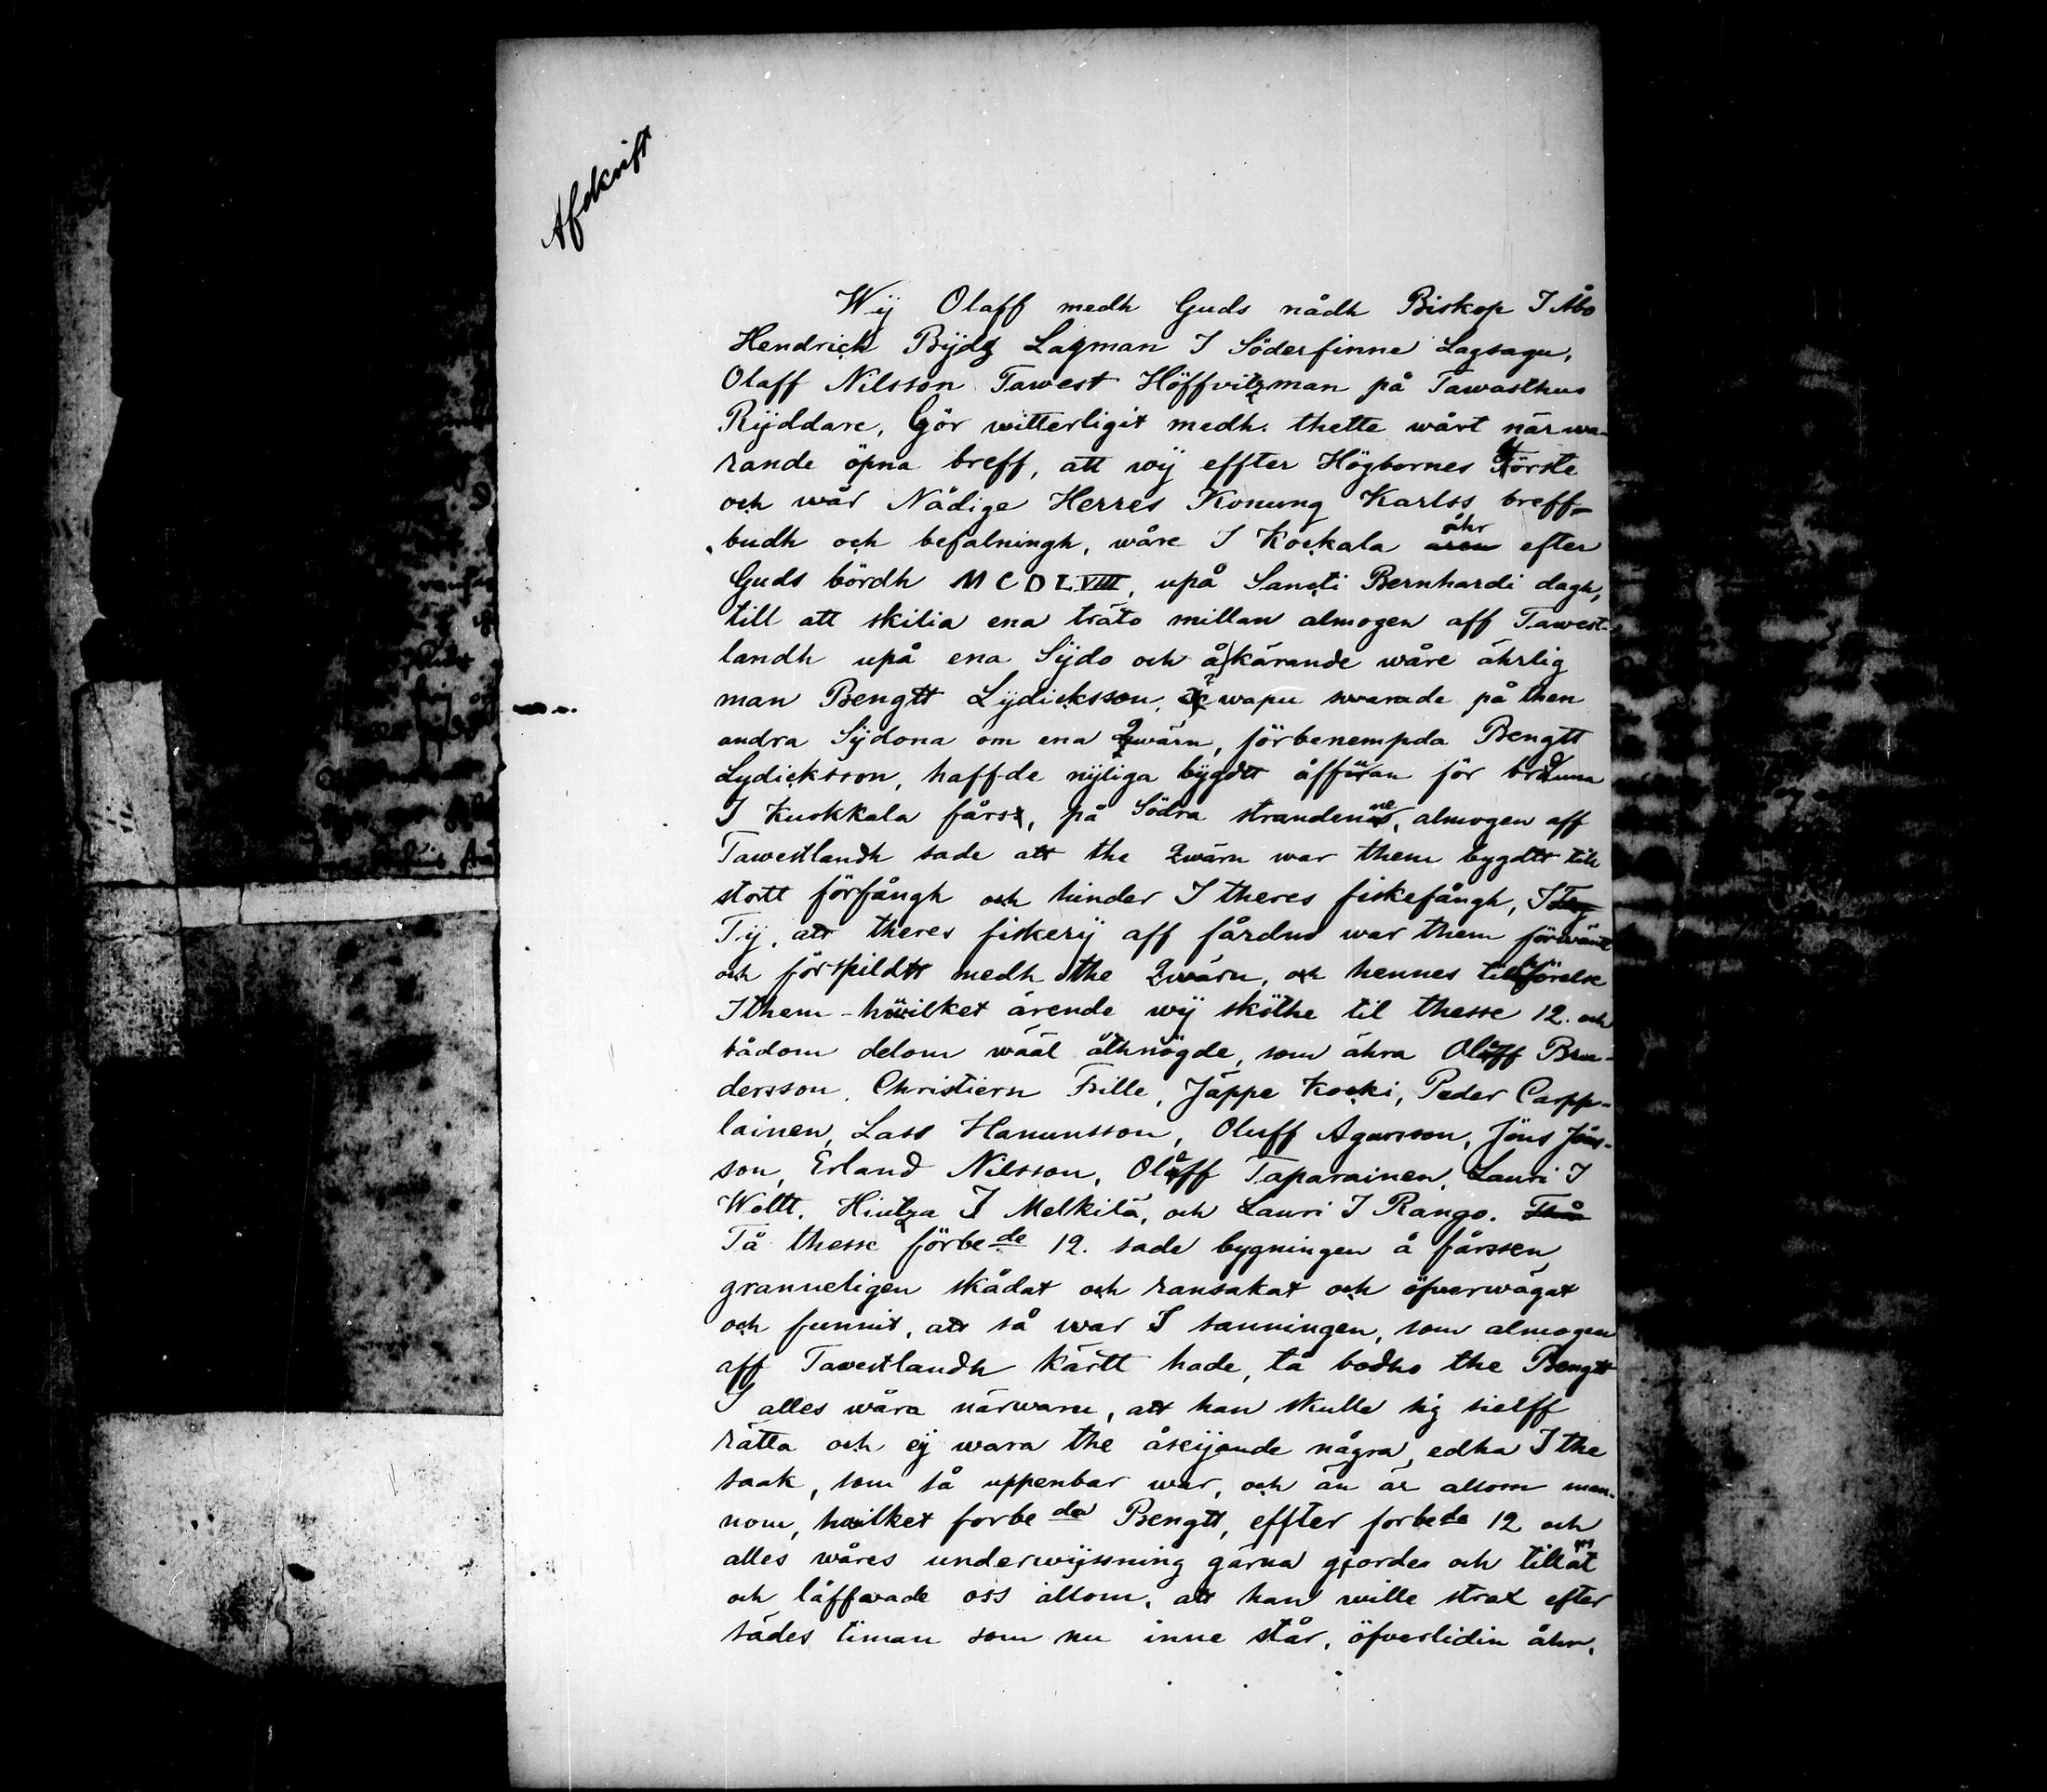 Afskrift
Wij Olaff medh Guds nådh Biskop I Åbo
Hendrich Bijdz Lagman I Söderfinne Lagsagu,
Olaff Nilsson Tawest Höffvitzman på Tawasthus
Rijddare, Gör witterligit medh. thette wårt närwa-
rande öpna breff, att wij effter Högbornes Förste
och wår Nådige Herres Konung Karlss breff-
budh och befalningh, wåre I Kockala åhr efter
Guds bördh MCDLVIII, upå Sancti Bernhardi dagh,
till att skilia ena träto millan almogen aff Tawest-
landh upå ena Sijdo och åkärande wåre ährlig
man Bengtt Lydicksson, wapn swarade på then
andra Sijdona om ena Qwärn, förbenempda Bengtt
Lydicksson, haffde nyliga bygdtt åfföran för
I Kuokkala fårs, på Södra strandene, almogen aff
Tawestlandh sade att the Qwärn war them bygdtt till
stortt förfångh och hinder I theres fiskefångh, I
Tij, att theres fiskerij aff fårdno war them förwänt
och förspildtt medh the Qwärn, och hennes tilhörelse
Ithem - hwilket ärende wij sköthe til thesse 12. och
bådom delom wääl åthnögde, som ähra Olåff Bru-
dersson, Christiern Frille, Jäppe Kocki, Peder Carpp-
lainen, Lass Hanunsson, Oluff Agarsson, Jöns Jöns-
son, Erland Nilsson, Olåff Taparainen, Lauri I
Woltt. Hintza I Melkilä, och Lauri I Rango.
Tå thesse förbe de 12. sade bygningen å fårssen,
granneligen skådat och ransakat och öfverwägat
och funnit, att så war I sanningen, som almogen
aff Tawestlandh kärtt hade, tå bodho the Bengtt
I alles wåra närwaru, att han skulle sig sielff
rätta och ej wara the åskijande några, edha I the
saak, som så uppenbar war, och än är allom man-
nom, hwilket forbe da Bengtt, effter forbe de 12 och
alles wåres underwijssning gärna gjordes och tillåt
och låffwade oss allom, att han wille strax efter
sådes timan som nu inne står, öfverlidin åhr,